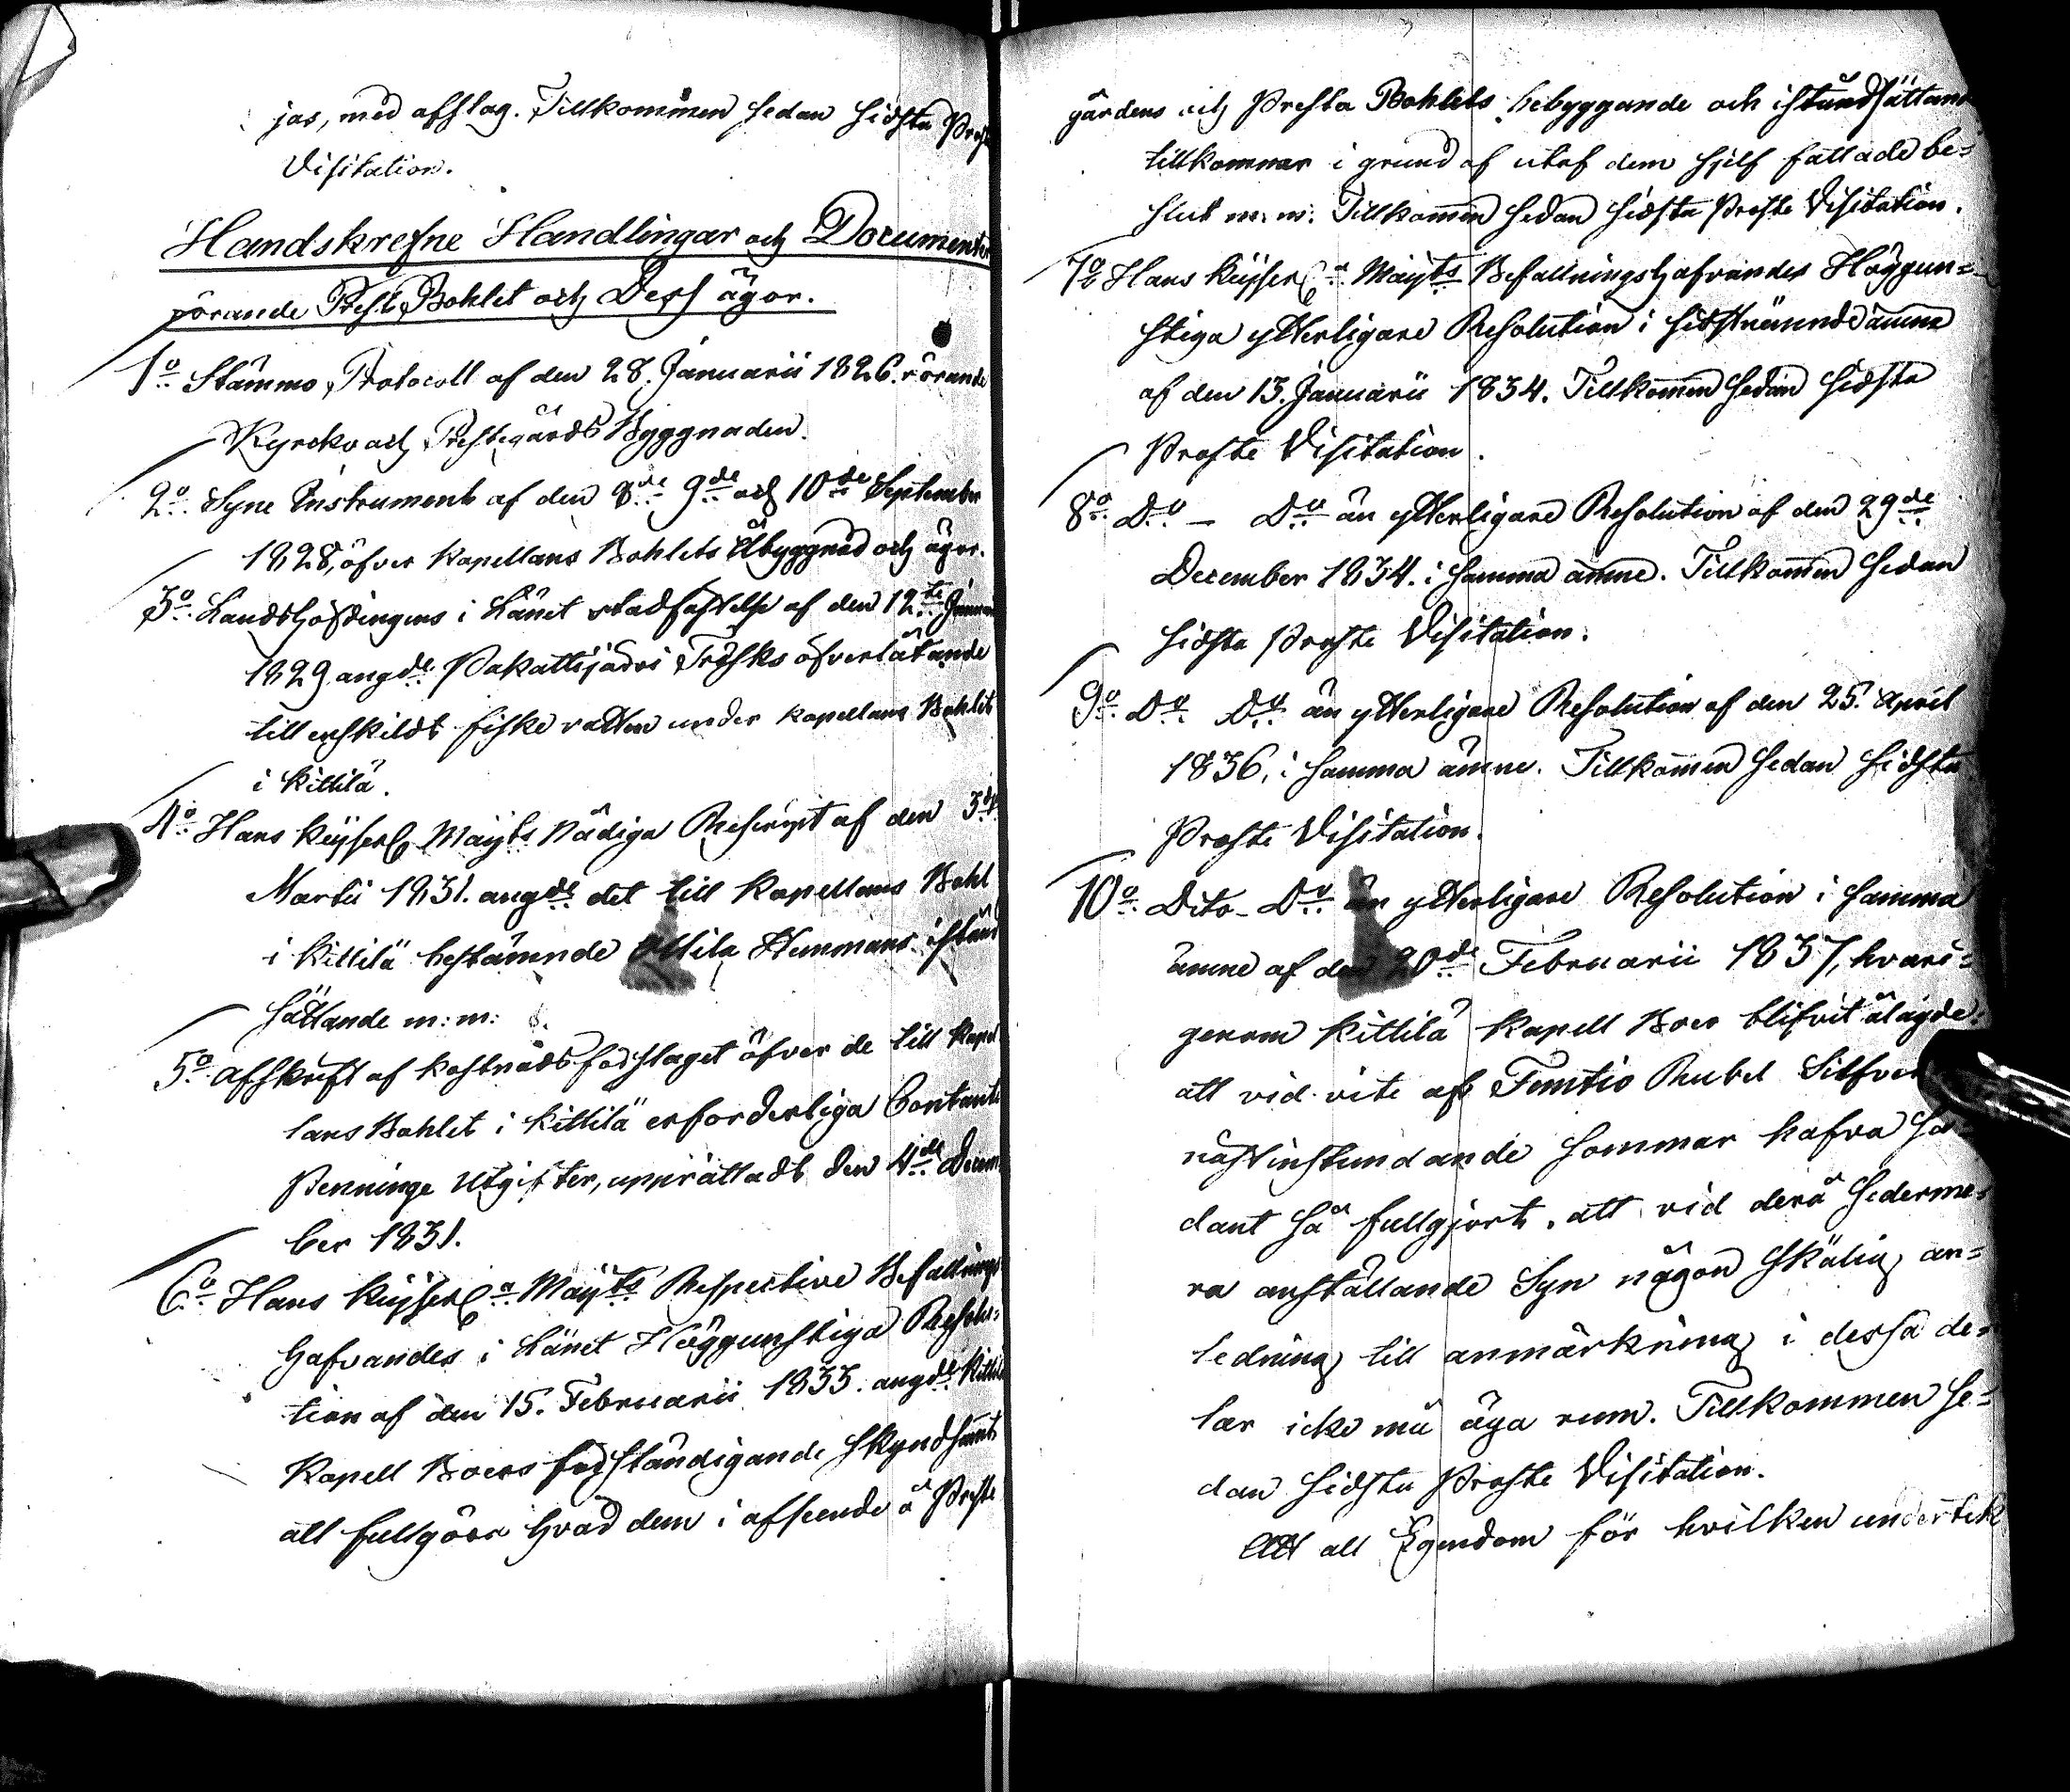 jas, med afslag. Tillkommen sedan sidsta Prost
Visitation.
Handskrefne Handlingar och Documenter
rörande Prest Bohlet och Dess ägor.
1o Stämmo Protocoll af den 28. Januarii 1826. rörande
Kyrcko och Prestegårds Byggnaden.
2o Syne Instrument af den 8de 9de och 10de September
1828, öfver Kapellans Bohlets Åbyggnad och ägor.
3o Landshöfdingens i Länet stadfästelse af den 12te Januari
1829 angde Pakattijärvi Träsks öfverlåtande
till enskildt fiske ratten under Kapellans Bohlet
i Kittilä.
4o Hans Keijserl Maijts Nådiga Rescript af den 3de
Martii 1831. angde det till Kapellans Bohl
i Kittilä bestämnde Ollila Hemmans istånd
sättande m:m:
5o Afskrift af Kostnads förslaget öfver de till Kapel
lans Bohlet i Kittilä erforderliga Contante
Penninge Utgifter, upprättadt den 4de Decem
ber 1831.
6o Hans Keijserla Maijts Respective Befallnings
hafvandes i Länet Höggunstiga Resolu=
tion af den 15. Februarii 1833. angde Kittilä
Kapell Boers förständigande skyndsamt
att fullgöra hvad dem i afseende å Preste
gårdens och Presta Bohlets bebyggande och iståndsättande
tillkommer i grund af utaf dem sjelf fattade be=
slut m:m: Tillkommen sedan sidsta Proste Visitation.
7o Hans Keijserla Maijts Befallningshafvandes Höggun=
stiga ytterligare Resolution i sidstnämnde ämne
af den 13. Januarii 1834. Tillkommen sedan sidsta
Proste Visitation.
8o Do - Do än ytterligare Resolution af den 29de
December 1834. i samma ämne. Tillkommen sedan
sidsta Proste Visitation.
9o Do Do än ytterligare Resolution af den 25. April
1836, i samma ämne. Tillkommen sedan sidsta
Proste Visitation.
10o Dito - Do än ytterligare Resolution i samma
ämne af den 20de Februarii 1837, hvari=
genom Kittilä Kapell Boer blifvit ålagde
att vid vite af Femtio Rubel Silfver
nästinstundande sommar hafva så=
dant så fullgjort, att vid derå sederme=
ra anställande Syn någon skälig an=
ledning till anmärkning i dessa de=
lar icke må äga rum. Tillkommen se=
dan sidsta Proste Visitation.
Att all Egendom för hvilken underteck